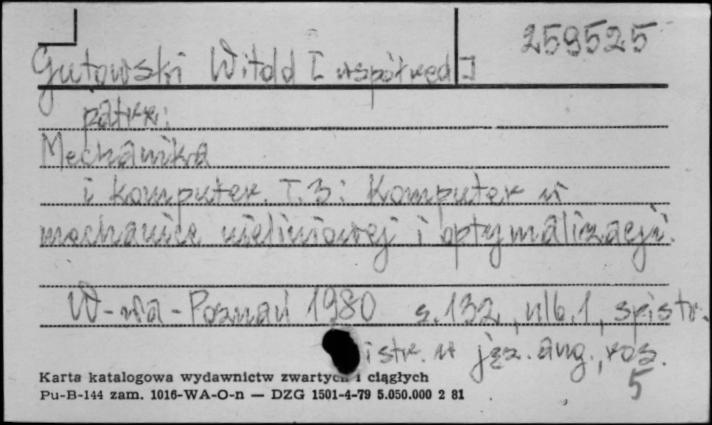 259525
Gutowski Witold [współred.]
patrz:
Mechanika
i komputer. T.3: Komputer w
mechanice nieliniowej i optymalizacji.
W-wa-Poznań 1980 s.132, nlb.1, spistr.
i str. w jęz. ang., ros.
5
Karta katalogowa wydawnictw zwartych i ciągłych
Pu-B-144 zam. 1016-WA-O-n — DZG 1501-4-79 5.050.000 2 81